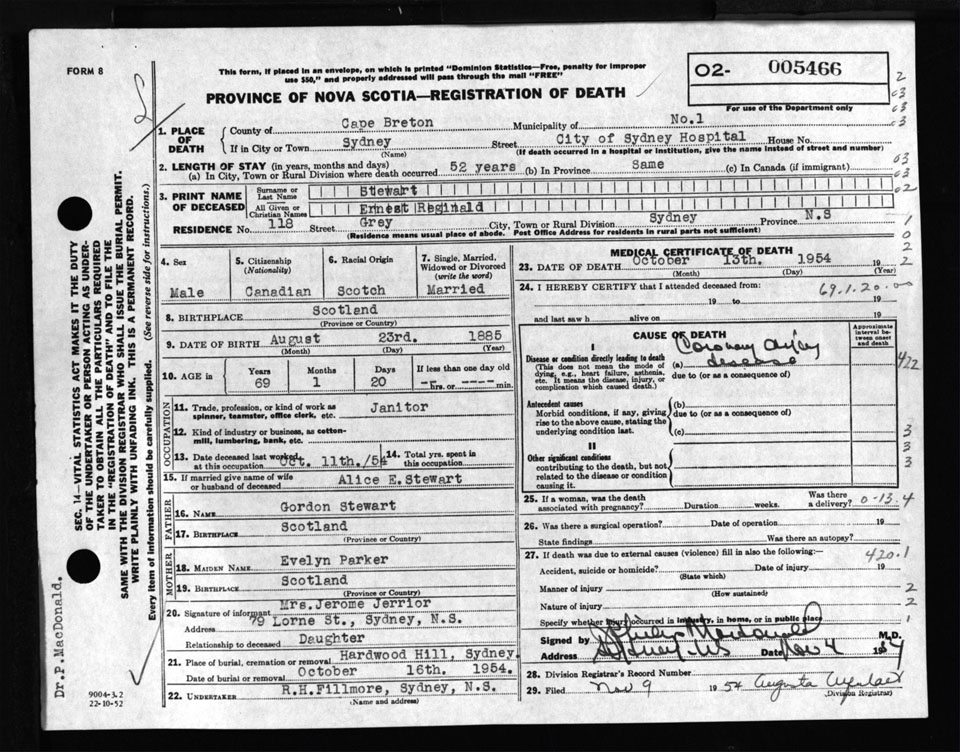 FORM 8
This form, if placed in an envelope, on which is printed "Dominion Statistics—Free, penalty for improper
use $50," and properly addressed will pass through the mail "FREE"
O2- 005466
For use of the Department only
PROVINCE OF NOVA SCOTIA—REGISTRATION OF DEATH
1. PLACE OF DEATH
County of Cape Breton Municipality of No.1
If in City or Town Sydney Street City of Sydney Hospital House No.
(Name) (If death occurred in a hospital or institution, give the name instead of street and number)
2. LENGTH OF STAY (in years, months and days)
(a) In City, Town or Rural Division where death occurred 52 years (b) In Province Same (c) In Canada (if immigrant)
3. PRINT NAME OF DECEASED
Surname or Last Name Stewart
All Given or Christian Names Ernest Reginald
RESIDENCE No. 118 Street Grey City, Town or Rural Division Sydney Province N.S
(Residence means usual place of abode. Post Office Address for residents in rural parts not sufficient)
4. Sex
Male
5. Citizenship (Nationality)
Canadian
6. Racial Origin
Scotch
7. Single, Married, Widowed or Divorced (write the word)
Married
8. BIRTHPLACE Scotland
(Province or Country)
9. DATE OF BIRTH August 23rd. 1885
(Month) (Day) (Year)
10. AGE in
Years Months Days If less than one day
69 1 20 hrs. or min.
OCCUPATION
11. Trade, profession, or kind of work as spinner, teamster, office clerk, etc. Janitor
12. Kind of industry or business, as cotton-mill, lumbering, bank, etc.
13. Date deceased last worked at this occupation Oct. 11th./54
14. Total yrs. spent in this occupation
15. If married give name of wife or husband of deceased Alice E.Stewart
FATHER
16. NAME Gordon Stewart
17. BIRTHPLACE Scotland
(Province or Country)
MOTHER
18. MAIDEN NAME Evelyn Parker
19. BIRTHPLACE Scotland
(Province or Country)
20. Signature of informant Mrs.Jerome Jerrior
Address 79 Lorne St., Sydney, N.S.
Relationship to deceased Daughter
21. Place of burial, cremation or removal Hardwood Hill, Sydney.
Date of burial or removal October 16th. 1954.
22. UNDERTAKER R.H.Fillmore, Sydney, N.S.
(Name and address)
MEDICAL CERTIFICATE OF DEATH
23. DATE OF DEATH October 13th. 1954 19
(Month) (Day) (Year)
24. I HEREBY CERTIFY that I attended deceased from:
69.1.20.00
19 to 19
and last saw h alive on 19
CAUSE OF DEATH
Approximate interval between onset and death
I
Disease or condition directly leading to death
(This does not mean the mode of dying, e.g., heart failure, asthenia, etc. It means the disease, injury, or complication which caused death.)
(a) Coronary Artery disease
due to (or as a consequence of)
422
Antecedent causes
Morbid conditions, if any, giving rise to the above cause, stating the underlying condition last.
(b)
due to (or as a consequence of)
(c)
II
Other significant conditions
contributing to the death, but not related to the disease or condition causing it.
25. If a woman, was the death associated with pregnancy? Duration weeks. Was there a delivery? 0-13.4
26. Was there a surgical operation? Date of operation 19
State findings Was there an autopsy?
27. If death was due to external causes (violence) fill in also the following:— 420.1
Accident, suicide or homicide? Date of injury 19
(State which)
Manner of injury
(How sustained)
Nature of injury
Specify whether injury occurred in industry, in home, or in public place
Signed by Macdonald M.D.
Address Sydney NS Date Nov 4 1954
28. Division Registrar's Record Number
29. Filed Nov 9 1954 Augusta
(Division Registrar)
SEC. 14—VITAL STATISTICS ACT MAKES IT THE DUTY
OF THE UNDERTAKER OR PERSON ACTING AS UNDER-
TAKER TO OBTAIN ALL THE PARTICULARS REQUIRED
IN THE "REGISTRATION OF DEATH" AND TO FILE THE
SAME WITH THE DIVISION REGISTRAR WHO SHALL ISSUE THE BURIAL PERMIT.
WRITE PLAINLY WITH UNFADING INK. THIS IS A PERMANENT RECORD.
Every item of information should be carefully supplied. (See reverse side for instructions.)
Dr.P.MacDonald.
9004-3.2
22-10-52